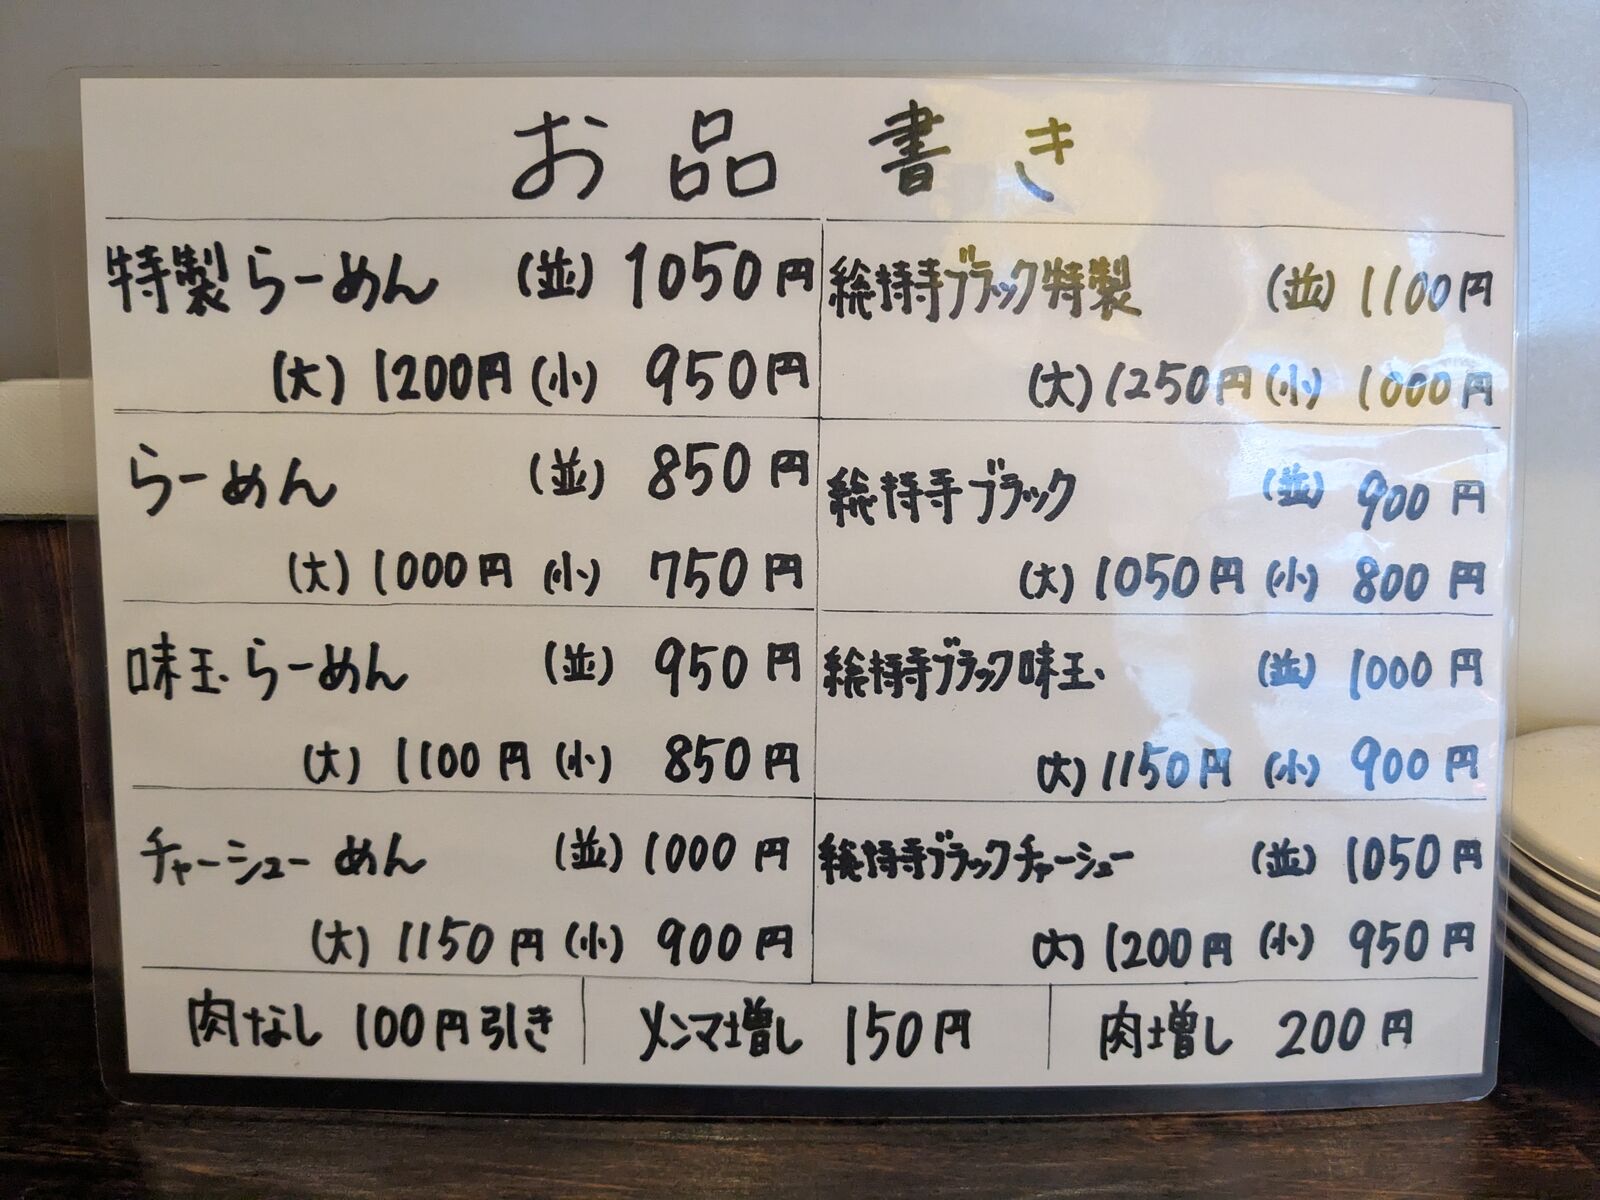 お品書き
特製らーめん (並) 1050円
(大) 1200円 (小) 950円
らーめん (並) 850円
(大) 1000円 (小) 750円
味玉らーめん (並) 950円
(大) 1100円 (小) 850円
チャーシューめん (並) 1000円
(大) 1150円 (小) 900円
総持寺ブラック特製 (並) 1100円
(大) 1250円 (小) 1000円
総持寺ブラック (並) 900円
(大) 1050円 (小) 800円
総持寺ブラック味玉 (並) 1000円
(大) 1150円 (小) 900円
総持寺ブラックチャーシュー (並) 1050円
(大) 1200円 (小) 950円
肉なし 100円引き
メンマ増し 150円
肉増し 200円